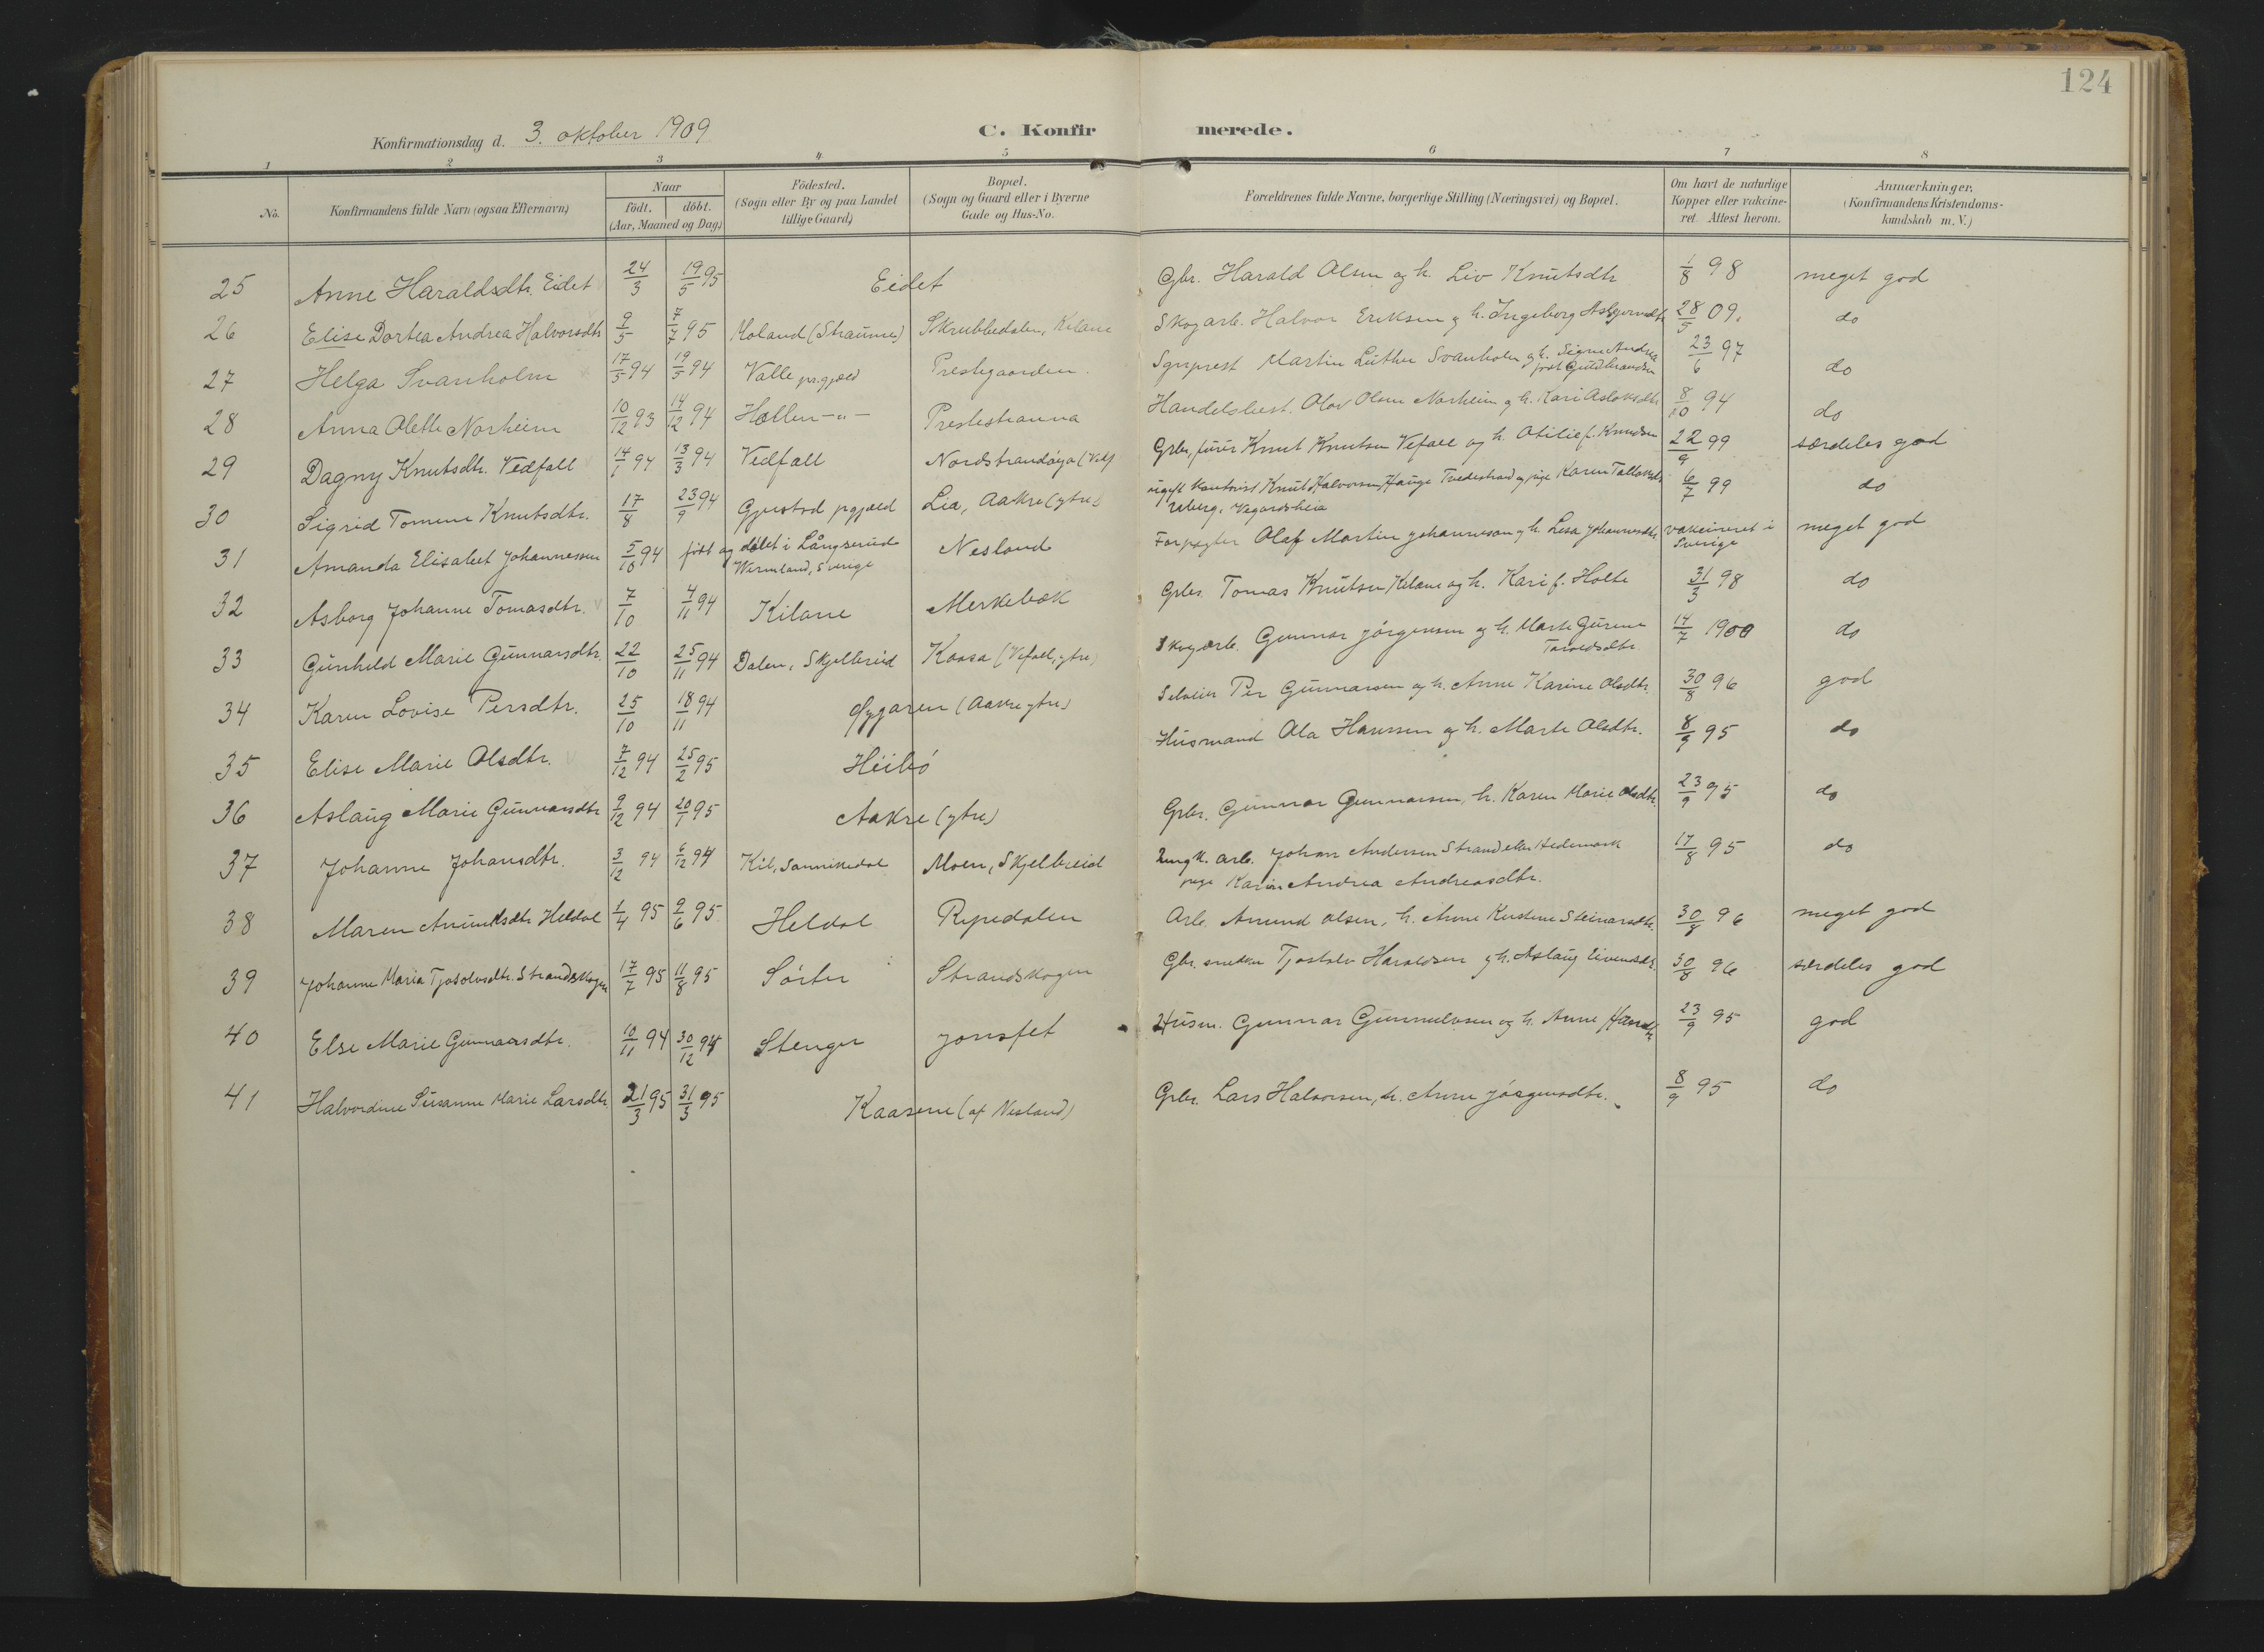 124
Konfirmationsdag d. 3. oktober 1909
C. Konfirmerede.
1 2 3 4 5 6 7 8
No.
Konfirmandens fulde Navn (ogsaa Efternavn)
Naar
födt. döbt.
(Aar, Maaned og Dag)
Födested.
(Sogn eller By og paa Landet
tillige Gaard)
Bopæl.
(Sogn og Gaard eller i Byerne
Gade og Hus-No.
Forældrenes fulde Navne, borgerlige Stilling (Næringsvei) og Bopæl.
Om havt de naturlige
Kopper eller vakcine-
ret. Attest herom.
Anmærkninger,
(Konfirmandens Kristendoms-
kundskab m. V.)
25 Anne Haraldsdtr. Eidet 24/3 19/5 95 Eidet Gbr. Harald Olsen og h. Liv Knutsdtr 1/8 98 meget god
26 Elise Dortea Andrea Halvorsdtr 9/5 7/7 95 Moland (Straume) Skrubbedalen, Kilane Skogarb. Halvor Eriksen og h. Ingeborg 28/5 09. do
27 Helga Svanholm 17/5 94 19/5 94 Valle prgjeld Prestegaarden. Sgnprest Martin Luther Svanholm og h. Signe Andrea
født Guldbrandsen 23/6 97 do
28 Anna Olette Norheim 10/12 93 14/12 94 Hollen -"- Prestestranna Handelsbest. Olav Olsen Norheim og h. Kari Aslaksdtr 8/10 94 do
29 Dagny Knutsdtr. Vedfall 14/1 94 13/3 94 Vedfall Nordstrandöya Grbr, furér Knut Knutsen Vefall og h. Otilie f. Knudsen 22/9 99 særdeles god
30 Sigrid Tomine Knutsdtr. 17/8 23/9 94 Gjerstad prgjæld Lia, Aakre (ytre) ugift Knut Halvorsen Hauge Tvedestrand og pige Karen
6/7 99 do
31 Amanda Elisabet Johannessen 5/10 94 født og döbt i Långserud
Wermland, Sverige Nesland Forpagter Olaf Martin Johannesson og h. Lesa Johannesdtr vakcineret i
Sverige meget god
32 Asborg Johanne Tomasdtr. 7/10 4/11 94 Kilane Merkebæk Grbr. Tomas Knutsen Kilane og h. Kari f. Holte 31/3 98 do
33 Gunhild Marie Gunnarsdtr. 22/10 25/11 94 Dalen, Skjelbreid Kaasa (Vefall, ytre) Skogarb. Gunnar Jörgensen og h. Marte Gurine
Tarvedsdtr. 14/7 1900 do
34 Karen Lovise Persdtr. 25/10 18/11 94 Øygaren (Aakre ytre) Selveier Per Gunnarsen og h. Anne Karine Olsdtr. 30/8 96 god
35 Elise Marie Olsdtr. 7/12 94 25/2 95 Heibö Husmand Ola Hanssen og h. Marte Olsdtr. 8/9 95 do
36 Aslaug Marie Gunnarsdtr 9/12 94 20/1 95 Aakre (ytre) Grbr. Gunnar Gunnarsen, h. Karen Marie Olsdtr. 23/9 95 do
37 Johanne Johansdtr. 3/12 94 6/12 94 Kil, Sannikedal Moen, Skjelbreid Ungk. arb. Johan Andersen Strand eller Hedemark
pige Karin Andrea Andreasdtr. 17/8 95 do
38 Maren Anundsdtr Heldal 1/4 95 9/6 95. Heldal Rypedalen Arb. Anund Olsen, h. Anne Kirstine Steinarsdtr. 30/8 96 meget god
39 Johanne Maria Tjosolvsdtr. Strandskogen 17/7 95 11/8 95 Sörter Strandskogen Gbr. snedker Tjostolv Haraldsen og h. Aslaug Eivendsdtr. 30/8 96 særdeles god
40 Else Marie Gunnarsdtr. 10/11 94 30/12 94 Stenger Jonsfet Husm. Gunnar Gunnulvsen og h. Anne 23/9 95 god
41 Halvordine Susanne Marie Larsdtr 21/3 95 31/3 95 Kaasene (af Nesland) Grbr. Lars Halvorsen, h. Anne Jörgensdtr. 8/9 95 do